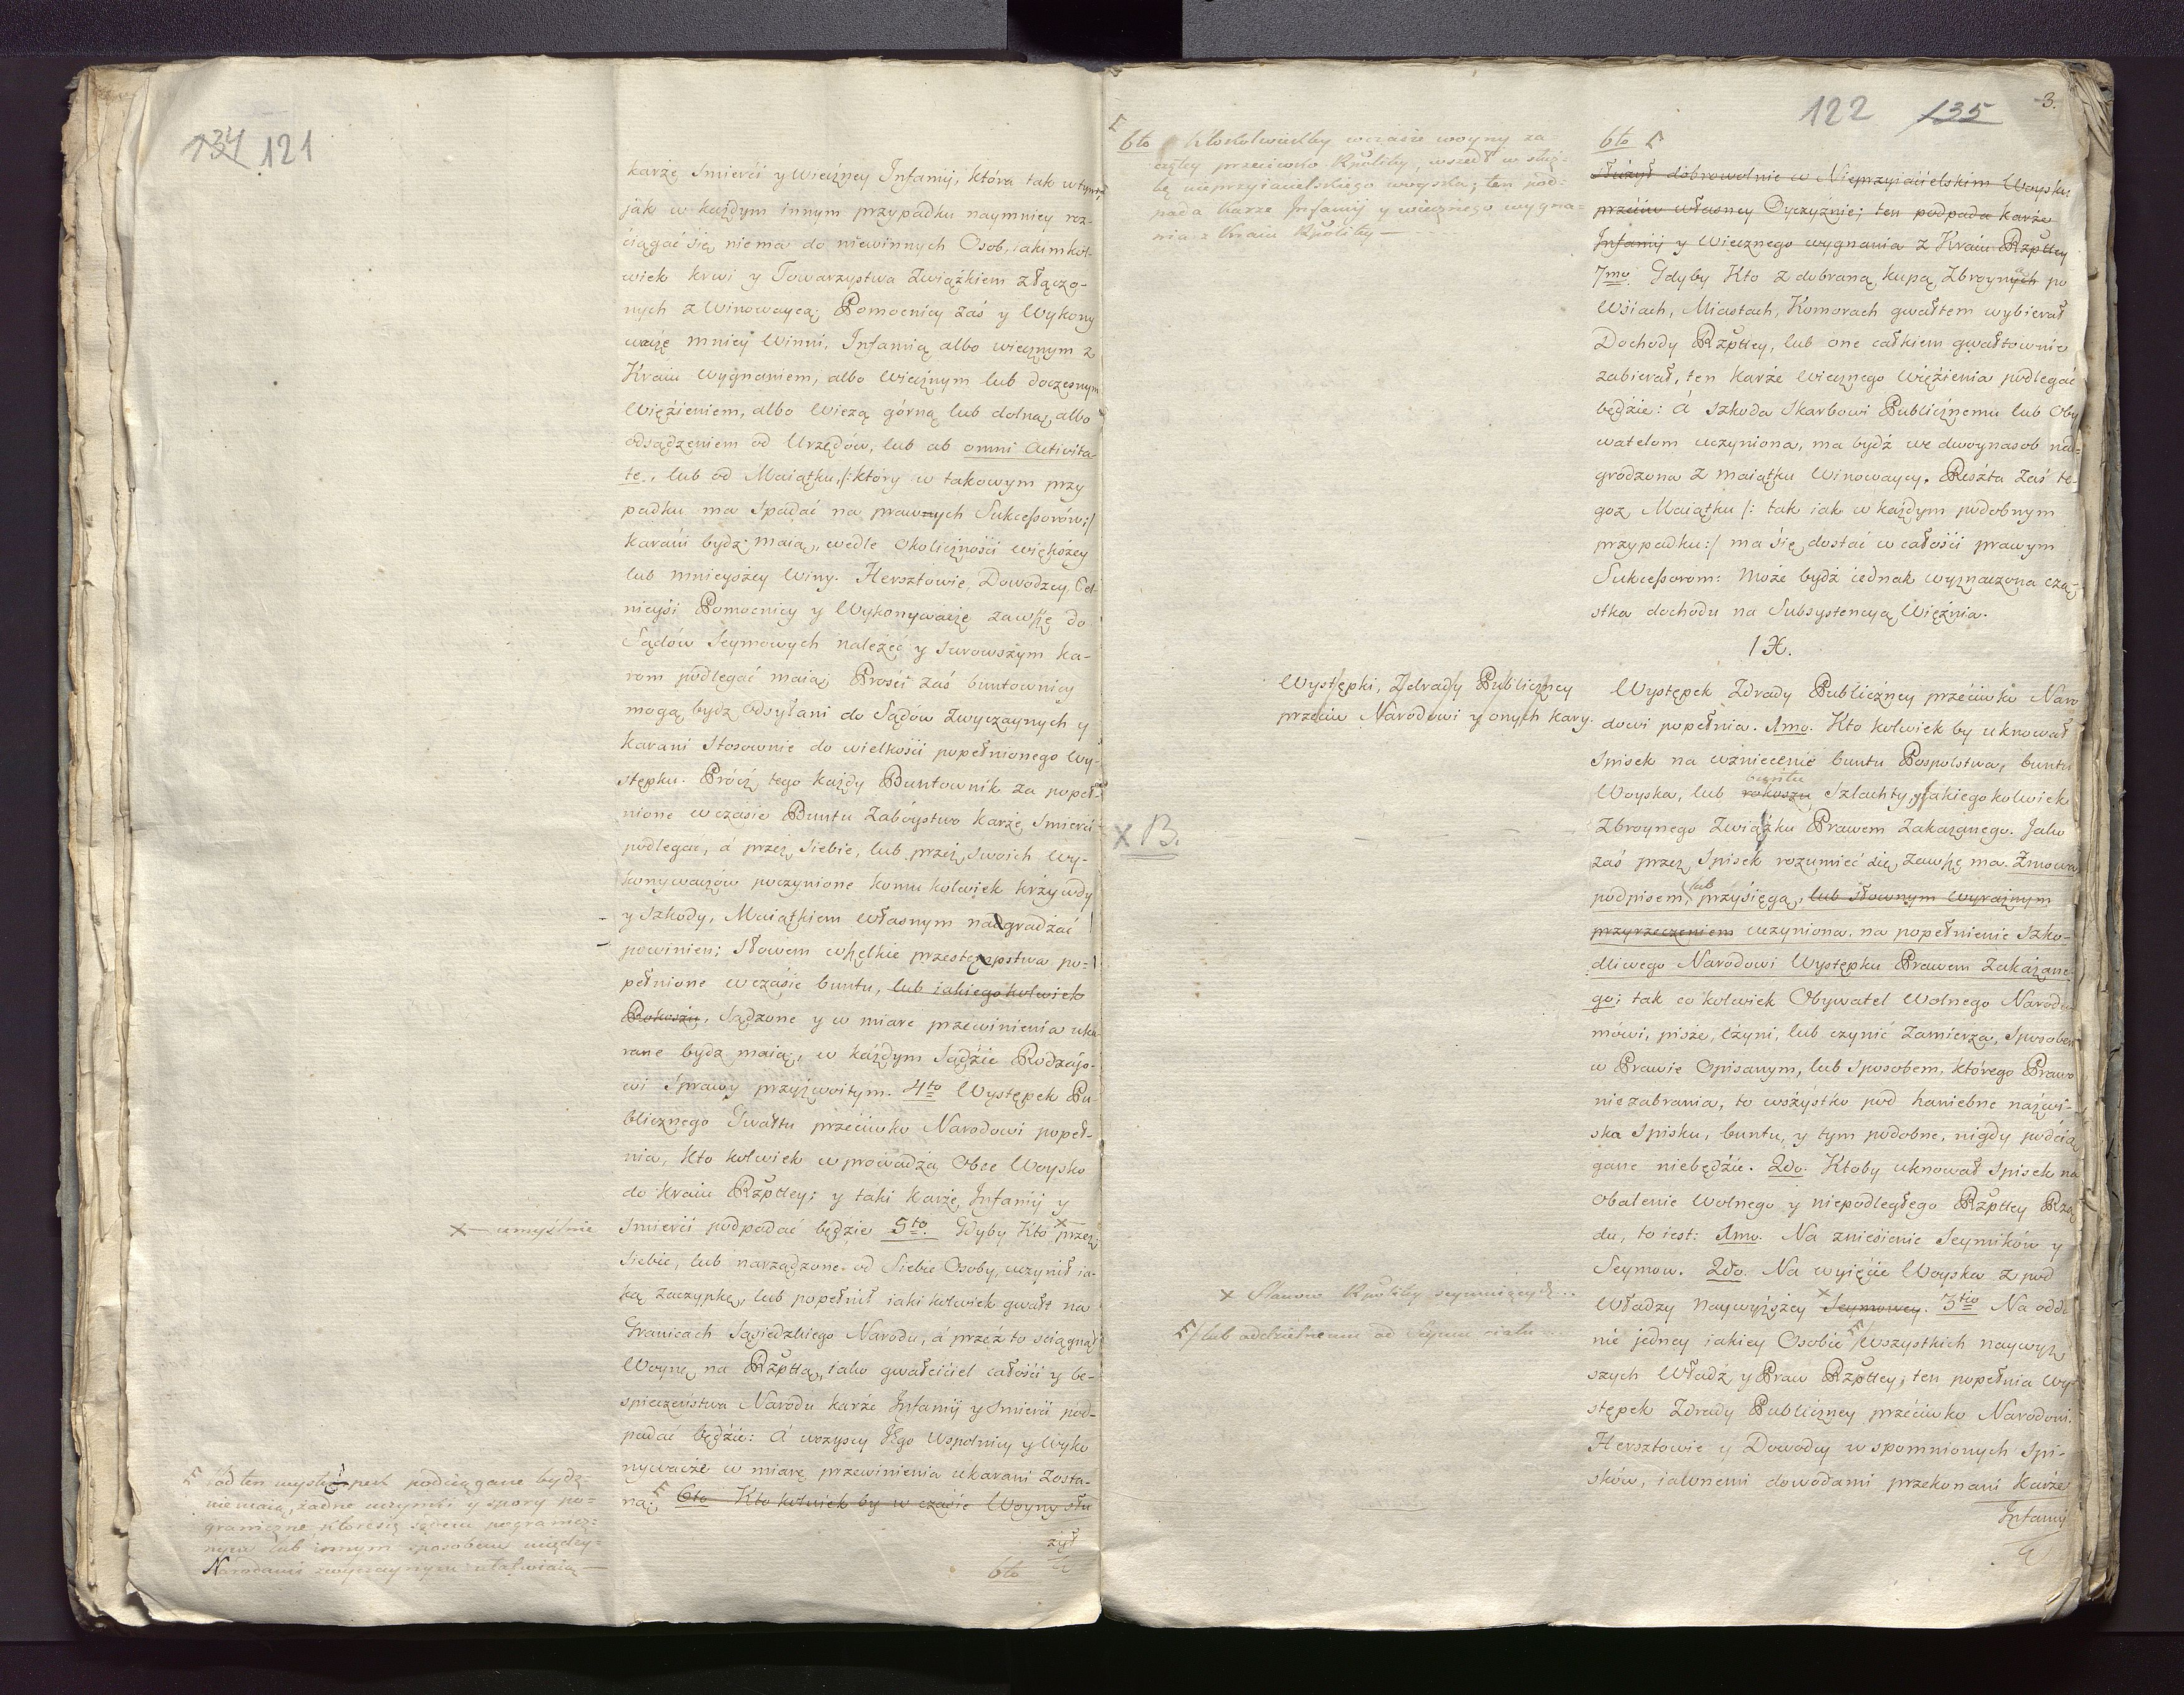 134 121
karze Smierći y Wieczney Infamij, która tak w tym
jak w każdym innym przypadku naymniey roz-
ciągać się niema do niewinnych Osob, iakimkol-
wiek krwi y Towarzystwa Związkiem złączo-
nych z Winowaycą; Pomocnicy zaś y Wykony
wacze mniey Winni, Infamią albo wiecznym z
Kraiu wygnaniem, albo Wiecznym lub doczesnym
Więźieniem, albo Wieżą górną lub dolną, albo
odsądzeniem od Urzędów, lub ab omni Activita
te, lub od Maiątku, /: który w takowym przy
padku ma Spadać na prawnych Sukcessorów :/
Karani bydź maią, wedle Okoliczności większey
lub mnieyszey Winy. Hersztowie, Dowodzcy, Cel-
nieysi Pomocnicy y Wykonywacze zawsze do
Sądów Seymowych należeć y Surowszym Ka-
rom podlegać maią; Prości zaś buntownicy
mogą bydz odsyłani do Sądów Zwyczaynych y
Karani Stosownie do wielkości popełnionego Wy-
stępku. Prócz tego każdy Buntownik za popeł-
nione w czasie Buntu Zaboystwo Karze Smierci
podlegać, á przez Siebie, lub przez Swoich Wy-
konywaczów poczynione komu kolwiek krzywdy
y Szkody, Maiątkiem własnym nadgradzać
powinien; Słowem wszelkie przestępstwa po-
pełnione w czasie buntu, lub iakiegokolwiek
Rokoszu, Sądzone y w miare przewinienia uka
rane bydz maią, w każdym Sądzie Rodzajo-
wi Sprawy przyzwoitym. 4to Występek Pu-
blicznego Gwałtu przeciwko Narodowi popeł-
nia, Kto kolwiek wprowadza Obce Woysko
do Kraiu Rzpttey; y taki Karze Infamij y
× umyślnie
Smierci podpadać będzie 5to. Gdyby Kto × przez
Siebie, lub narządzone od Siebie Osoby, uczynił ia-
ką zaczypkę, lub popełnił iaki kolwiek gwałt na
Granicach Sąsiedzkiego Narodu, á przez to sciągnął
Woynę na Rzpttą, iako gwałciciel całości y be-
spieczeństwa Narodu karze Infamij y Smierci pod-
padać będzie: á wszyscy Jego Wspolnicy y Wyko
nywacze w miarę przewinienia ukarani Zosta-
ną; 6to Kto kolwiek by w czasie Woyny słu
żył
6to
od ten występek podciągane bydź
niemaią, żadne uczynki y spory po=
graniczne, ktore się sądem pogranicz=
nym lub innym sposobem między=
Narodami zwyczaynym ułatwiaią
122 135 3.
6to Ktokolwiekby w czasie woyny za
czętey przeciwko Rpolitey, wszedł w służ-
bę nieprzyiacielskiego woyska; ten pod=
pada karze Infamij y wiecznego wygna=
nia z Kraiu Rpolitey
6to
służył dobrowolnie w Nieprzyiacielskim Woysku
przeciw własney Oyczyznie; ten podpada karze
Infamij y Wiecznego wygnania z Kraiu Rzpttey
7mo. Gdyby Kto z dobraną kupą Zbroynych po
Wsiach, Miastach, Komorach gwałtem wybierał
Dochody Rzpttey, lub one całkiem gwałtownie
zabierał, ten karze Wiecznego Więzienia podlegać
będzie: á szkoda Skarbowi Publicznemu lub Oby
watelom uczyniona, ma bydź we dwoynasob na-
grodzona z maiątku Winowaycy. Reszta zaś te-
goz Maiątku /: tak iak w każdym podobnym
przypadku :/ ma się dostać w całości prawym
Sukcessorom: Może bydź iednak wyznaczona czą-
stka dochodu na Subsystencyą Więźnia.
IX.
Występki, Zdrady Publiczney
przeciw Narodowi y onych kary.
Występek Zdrady Publiczney przeciwko Naro
dowi popełnia. 1mo. Kto kolwiek by uknował
Spisek na wzniecenie buntu Pospolstwa, buntu
Woyska, lub rokoszu buntu Szlachty, y iakiego kolwiek
Zbroynego Związku Prawem Zakazanego. Jako
× B.
zaś przez Spisek rozumieć się zawsze ma Zmowa
podpisem, lub przysięgą, lub słownym wyraznym
przyrzeczeniem uczyniona, na popełnienie Szko-
dliwego Narodowi Występku Prawem Zakazane-
go; tak co kolwiek Obywatel Wolnego Narodu
mówi, pisze, czyni, lub czynić Zamierza, Sposobem
w Prawie Opisanym, lub Sposobem, którego Prawo
niezabrania, to wszystko pod haniebne nazwi-
ska Spisku, buntu, y tym podobne, nigdy podcią
gane niebędzie. 2do. Ktoby uknował Spisek na
Obalenie Wolnego y niepodległego Rzpttey Rzą
du, to iest: 1mo. Na zniesienie Seymików y
Seymow. 2do. Na wyięcie Woyska z pod
× Stanow Rpolitey seymuiących
Władzy Naywyższey × Seymowey. 3tio Na odda
/ lub oddzielnemu od Seymu ciału
nie jedney iakiey Osobie / Wszystkich naywyż
szych Władz y Praw Rzpttey; ten popełnia Wy-
stępek Zdrady Publiczney przeciwko Narodowi.
Hersztowie y Dowodcy wspomnionych Spi-
sków, iawnemi dowodami przekonani Karze
Infamij